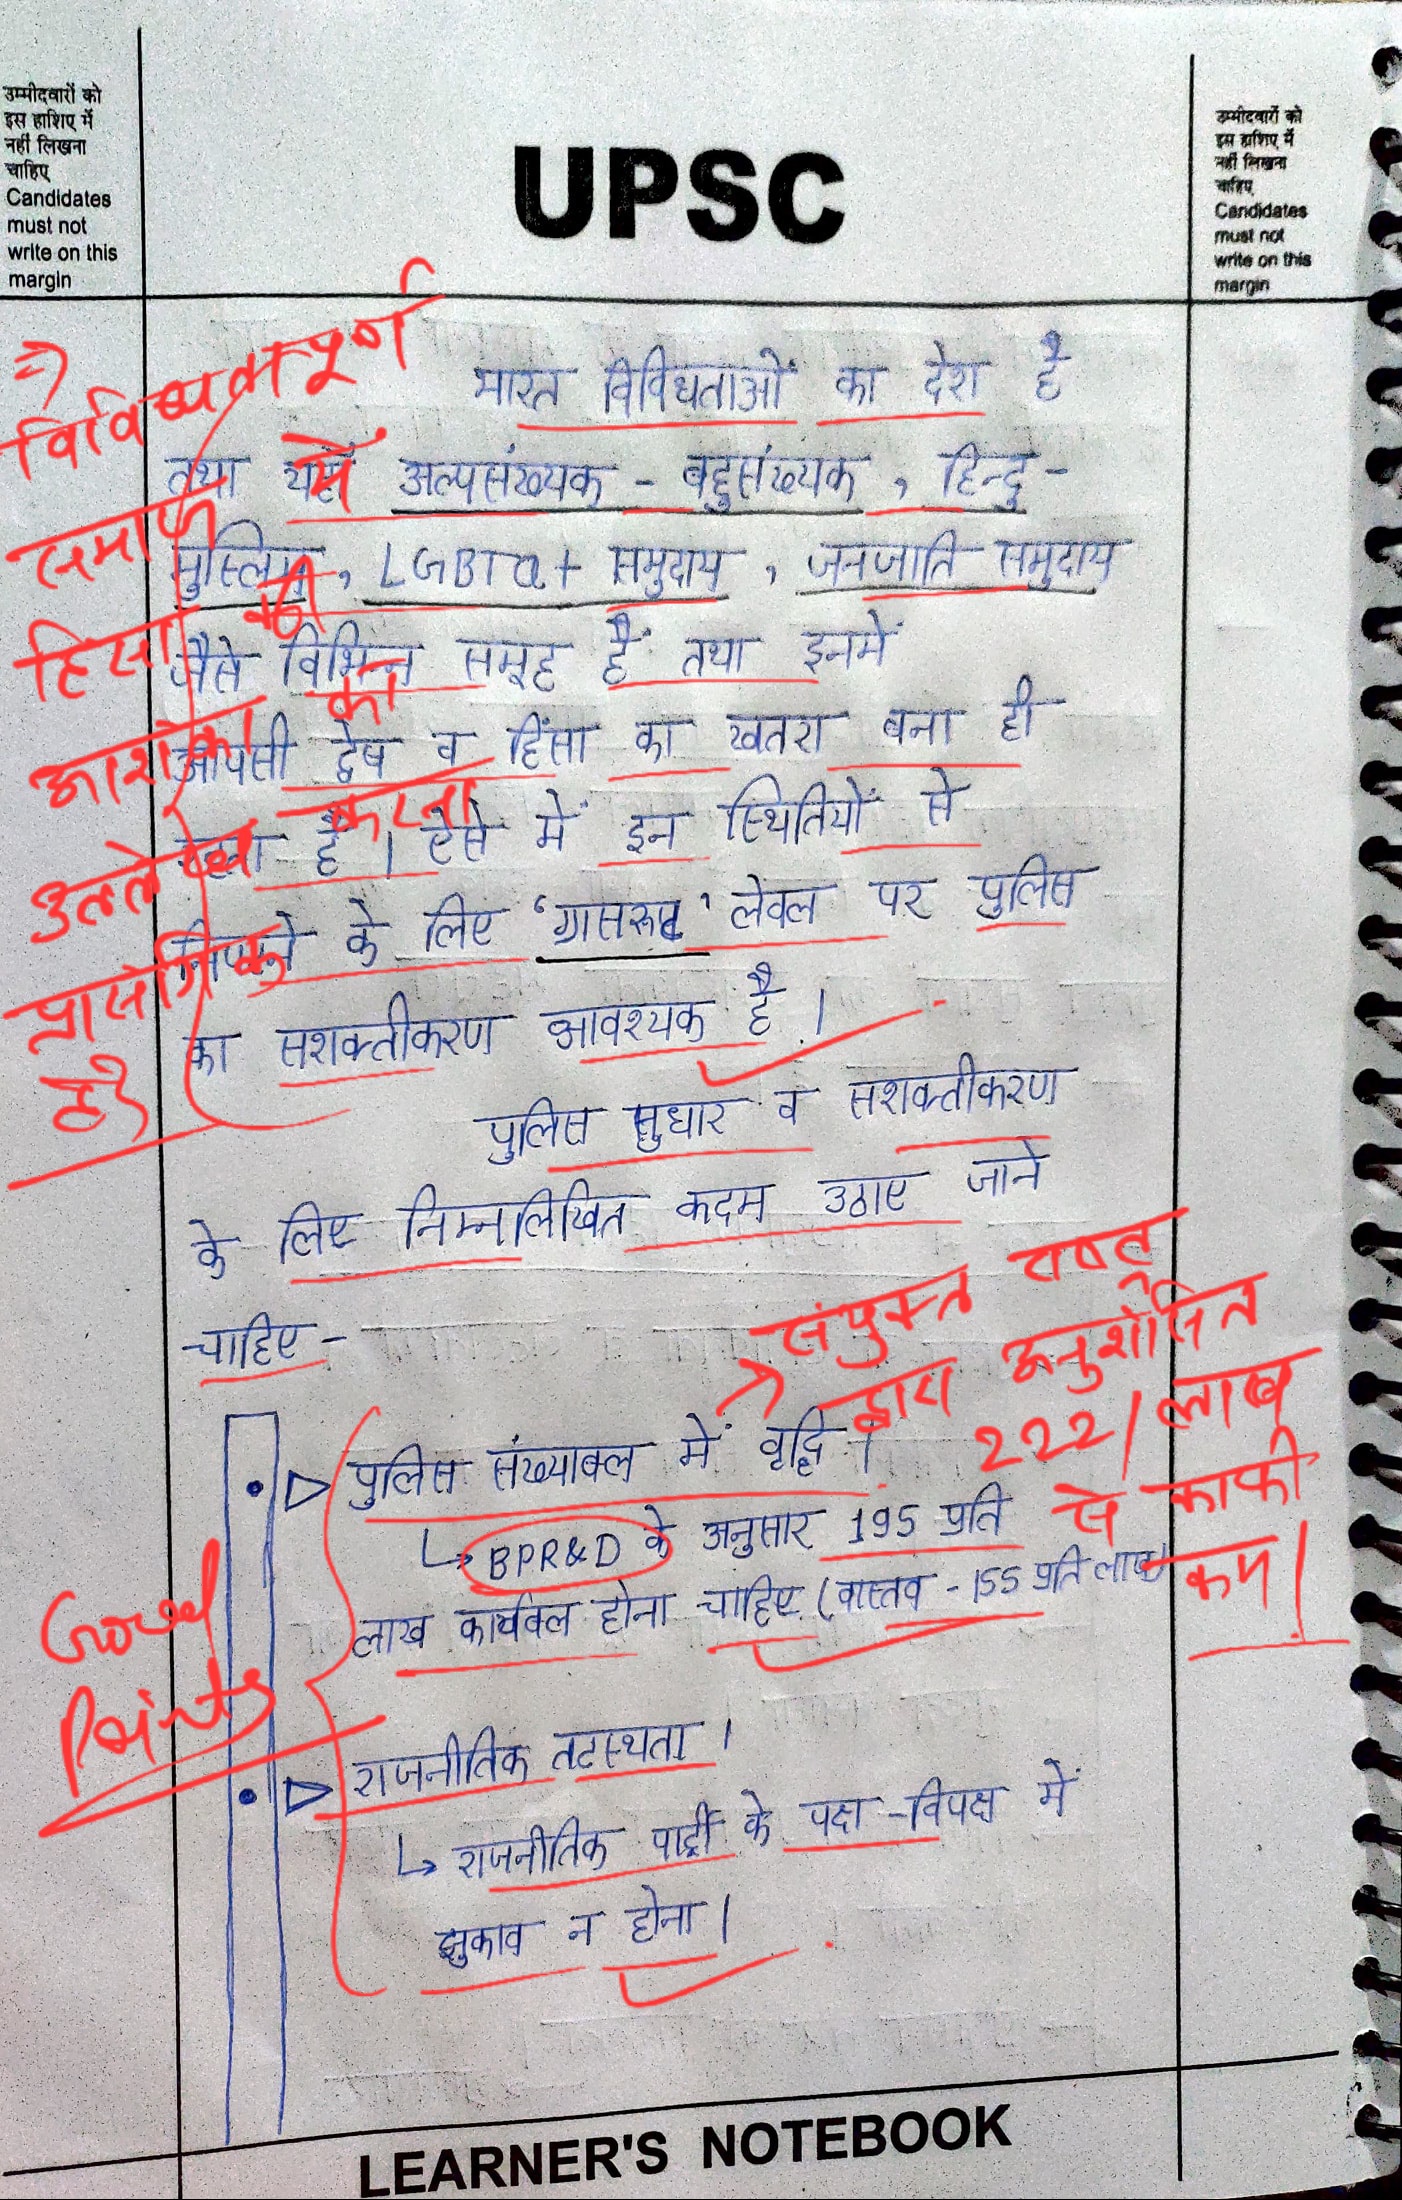 उम्मीदवारों को
इस हाशिए में
नहीं लिखना
चाहिए
Candidates
must not
write on this
margin
UPSC
उम्मीदवारों को
इस हाशिए में
नहीं लिखना
चाहिए
Candidates
must not
write on this
margin
भारत विविधताओं का देश है
तथा यहाँ में अल्पसंख्यक - बहुसंख्यक , हिन्दु -
मुस्लिम , LGBTQ+ समुदाय , जनजाति समुदाय
जैसे विभिन्न समूह हैं तथा इनमें
आपसी द्वेष व हिंसा का खतरा बना ही
रहता है । ऐसे में इन स्थितियों से
निपटने के लिए ‘ग्रासरूट’ लेवल पर पुलिस
का सशक्तीकरण आवश्यक है ।
⇒ विविधतापूर्ण
समाज में
हिंसा की
आशंका का
उल्लेख करना
प्रासंगिक
है।
पुलिस सुधार व सशक्तीकरण
के लिए निम्नलिखित कदम उठाए जाने
चाहिए -
▷ पुलिस संख्याबल में वृद्धि ।
↳ BPR&D के अनुसार 195 प्रति
लाख कार्यबल होना चाहिए (वास्तव - 155 प्रति लाख)
→ संयुक्त राष्ट्र
द्वारा अनुशंसित
222/लाख
से काफी
कम।
Good
Points
▷ राजनीतिक तटस्थता ।
↳ राजनीतिक पार्टी के पक्ष - विपक्ष में
झुकाव न होना ।
LEARNER'S NOTEBOOK